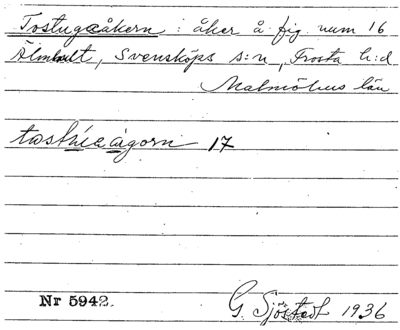 Tostugeåkern : åker å fig. num 16
Älmhult, Svensköps s:n, Frosta h:d
Malmöhus län
17
Nr 5942.
G. Sjöstedt 1936